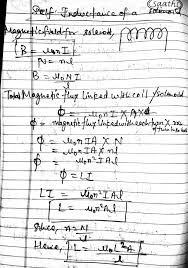 Self Inductance of a
Solenoid
Saathi
Magnetic field for solenoid,
B = μ₀nI
N = nl
B = μ₀NI
Total Magnetic flux linked with coil / Solenoid
ϕ = μ₀nI × A × N
ϕ = magnetic flux linked with each turn × no
ϕ = μ₀nIA × N
ϕ = μ₀nIA × nl
ϕ = μ₀n²IAl
ϕ = LI
LI = μ₀n²IAl
L = μ₀n²Al
Since, n = N/l
Hence, L = μ₀N²A/l